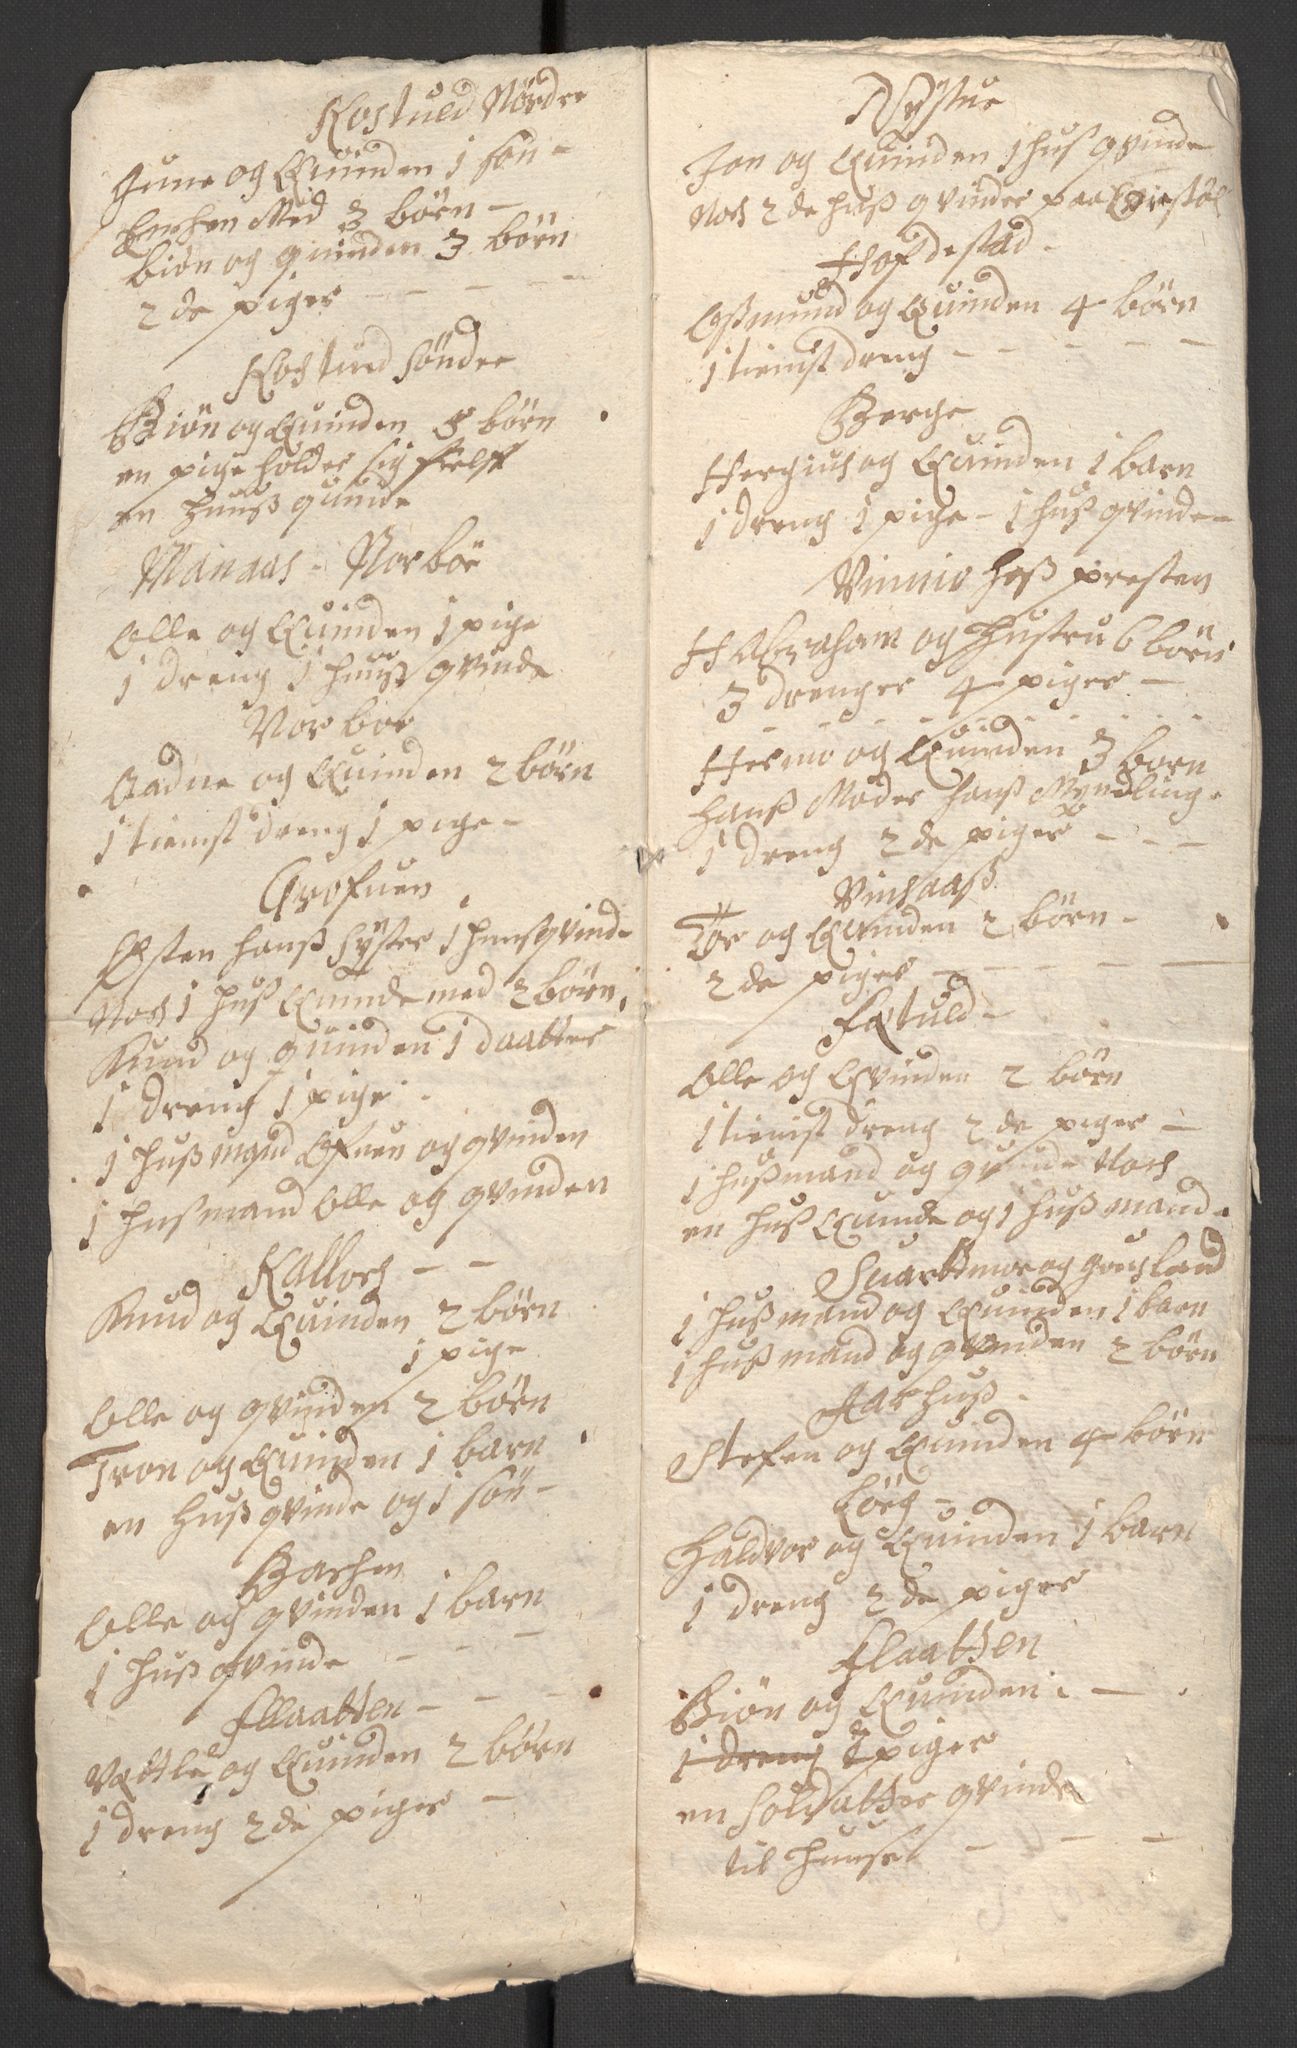 Rostuld Nördre
Gune og Quinden 1 sön -
Enchen Med 3 börn -
biön og quinden 3 börn
2 de piger - - - - -
Rostuld Söndre
Biön og Quinden 5 börn
en pige holder sig sielff
en huuß quinde
Manaas - Norböe
Olle og Quinden 1 pige
1 dreng 1 huuß qvinde
Norboe
Aadne og Quinden 2 börn
1 tienist dreng 1 pige -
Grofuen
Østen hanß syster 1 huusqvinde
Noch 1 huß Quinde med 2 börn
Knud og quinden 1 daatter
1 dreng 1 pige -
1 hußmand Efuen og qvinden
1 hußmand Olle og qvinden
Kalloch - -
Knud og Quinden 2 börn
1 pige
Olle og qvinden 2 börn
Tron og Quinden 1 barn
en huß qvinde og 1 sön -
Bachen
Olle og qvinden 1 barn
1 huß qvinde - - -
Fllaatten - - -
Vettle og Quinden 2 börn
1 dreng 2 de piger -
Nystue
Jon og Quinden 1 huß qvinde
Noch 2 de huß qvinder paa
Hofdestad -
Oßmund og Quinden 4 börn
1 tienist dreng - - - - -
Berge
Hergius og Quinden 1 barn
1 dreng 1 pige - 1 huß qvinde -
Vinnie hoß presten
H Abraham og Hustru 6 börn
3 drenger 4 piger -
Herme og Quinden 3 born
hanß Moder hanß Myndling -
1 dreng 2 de piger - - -
Vinsaaß
Tor og Quinden 2 börn -
2 de piger - - - - -
Fetuld -
Olle og Qvinden 2 börn
1 tienist dreng 2 de piger -
1 hußmand og qvinde Noch
en huß Quinde og 1 huß mand -
Suartmoe og
1 huß mand og Quinden 1 barn
1 huß mand og qvinden 2 börn
Aarhuß -
Stefen og Quinden 4 börn
Löch -
Haldvor og Quinden 1 barn
1 dreng 2 de piger
Flaatten
Biön og Quinden - -
1 dreng 2 piger
en Soldatter qvinde
til huuse - - -